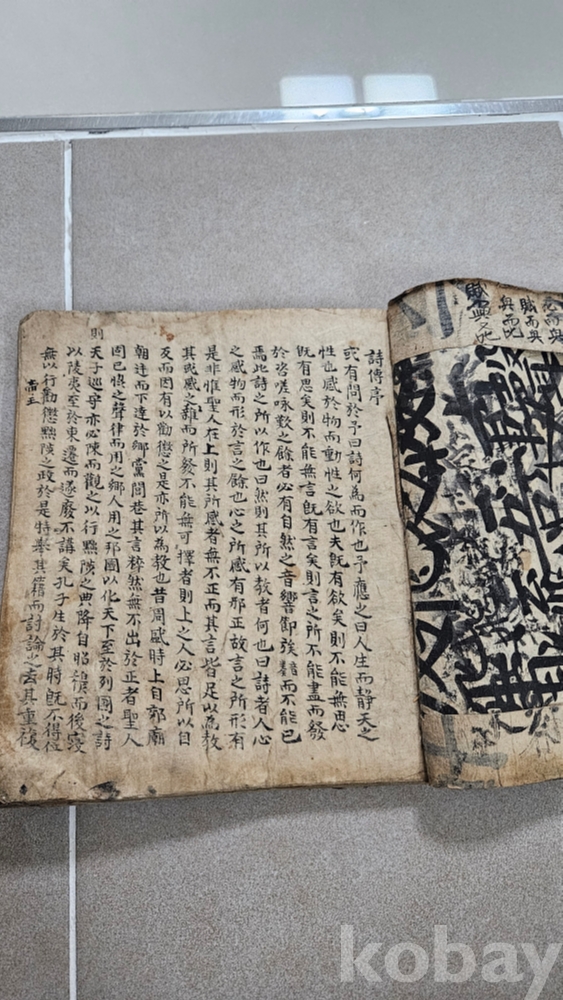 詩傳序
或有問於予曰詩何為而作也予應之曰人生而靜天之
性也感於物而動性之欲也夫旣有欲矣則不能無思
旣有思矣則不能無言旣有言矣則言之所不能盡而發
於咨嗟咏歎之餘者必有自然之音響節族而不能已
焉此詩之所以作也曰然則其所以教者何也曰詩者人心
之感物而形於言之餘也心之所感有邪正故言之所形有
是非惟聖人在上則其所感者無不正而其言皆足以為教
其或感之雜而所發不能無可擇者則上之人必思所以自
反而因有以勸懲之是亦所以為教也昔周盛時上自郊廟
朝廷而下達於鄉黨閭巷其言粹然無不出於正者聖人
固已協之聲律而用之鄉人用之邦國以化天下至於列國之詩
則天子巡守亦必陳而觀之以行黜陟之典降自昭穆而後寖
以陵夷至於東遷而遂廢不講矣孔子生於其時旣不得位
無以行勸懲黜陟之政於是特舉其籍而討論之去其重複
賦而興
興而比
kobay